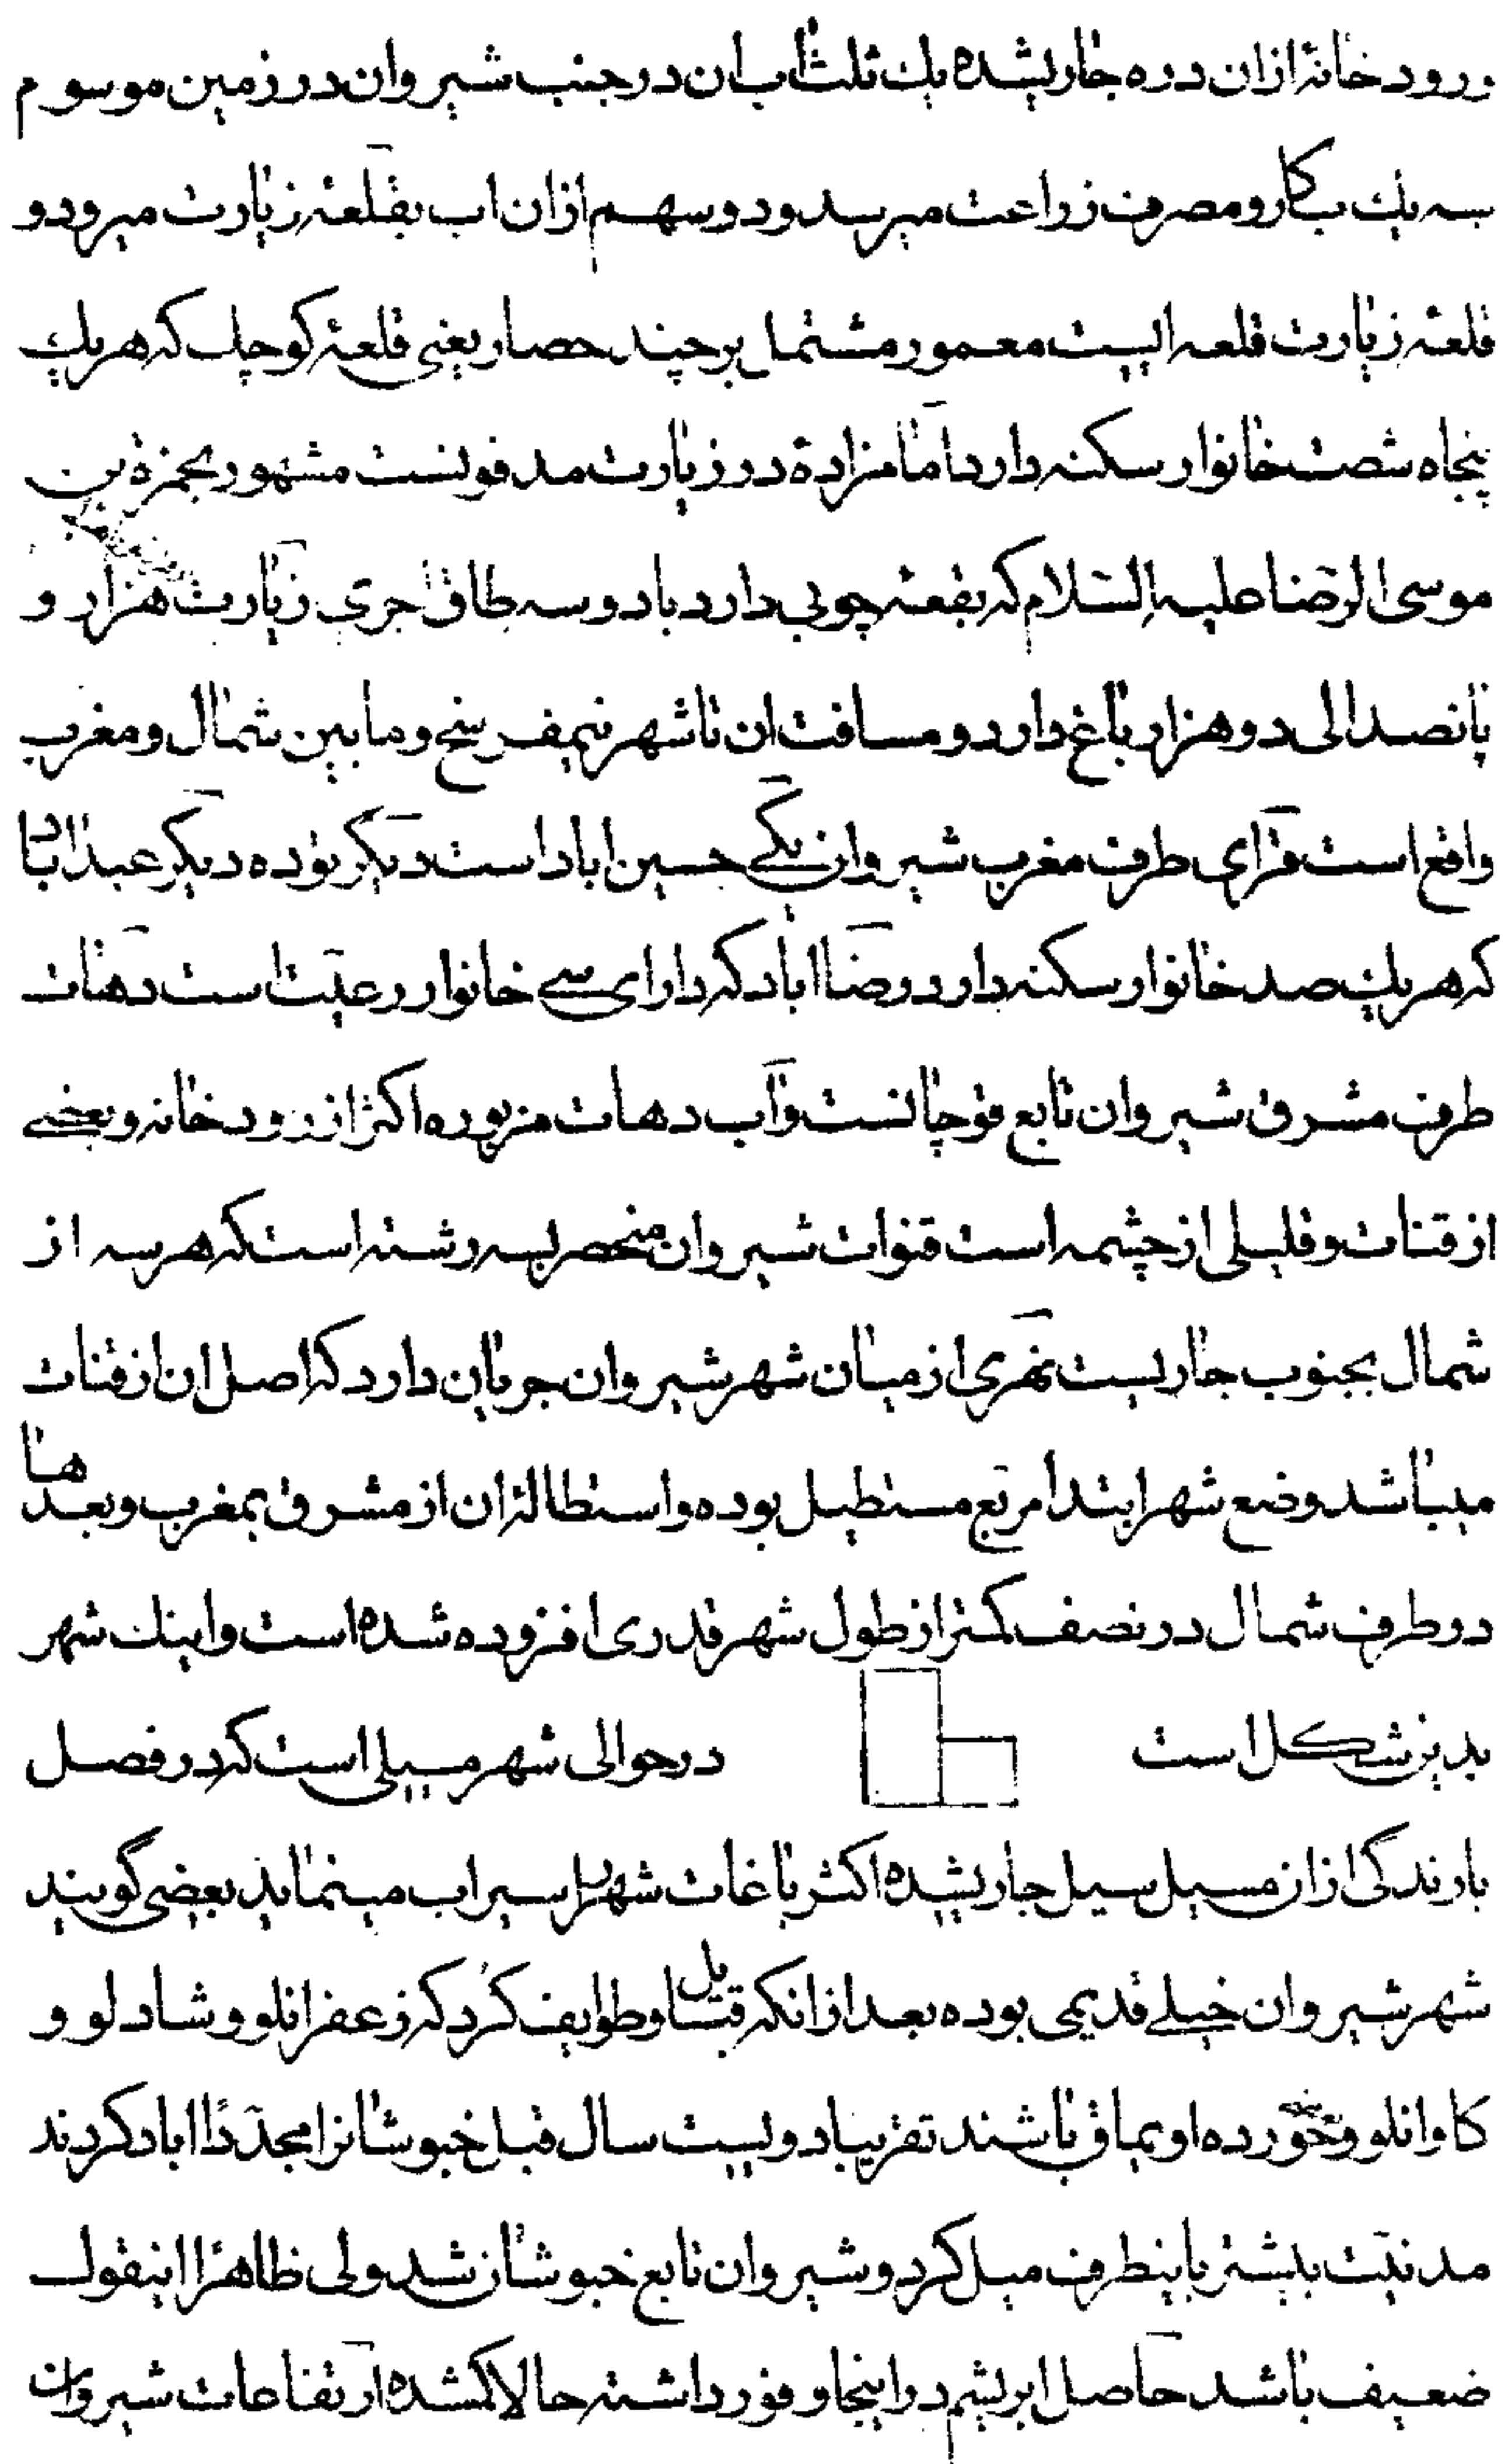 و رودخانهٔ ازان دره جاریشده یك ثلث اب ان در جنب شیروان در زمین موسوم
بسه یك بكار و مصرف زراعت میرسد و دو سهم ازان اب بقلعهٔ زیارت میرود و
قلعهٔ زیارت قلعه ایست معمور مشتمل بر چند حصار یعنی قلعهٔ كوچك كه هر یك
پنجاه شصت خانوار سكنه دارد امامزادهٔ در زیارت مدفونست مشهور بحمزة بن
موسی الرّضا علیه السّلام كه بقعهٔ چوبی دارد با دو سه طاق اجری زیارت هزار و
پانصد الی دو هزار باغ دارد و مسافت ان تا شهر نیمفرسخ و مابین شمال و مغرب
واقع است قرای طرف مغرب شیروان یكی حسین اباد است دیگر بوده دیگر عبداباد
كه هر یك صد خانوار سكنه دارد و رضا اباد كه دارای سی خانوار رعیّت است دهات
طرف مشرق شیروان تابع قوچانست و آب دهات مزبوره اكثر از رودخانه و بعضی
از قنات و قلیلی از چشمه است قنوات شیروان منحصر بسه رشته است كه هر سه از
شمال بجنوب جاریست نهری از میان شهر شیروان جریان دارد كه اصل ان از قنات
میباشد وضع شهر ابتدا مربّع مستطیل بوده و استطالهٔ ان از مشرق بمغرب و بعدها
در طرف شمال در نصف كمتر از طول شهر قدری افزوده شده است و اینك شهر
بدین شكل است در حوالی شهر مسیلی است كه در فصل
بارندگی ازان مسیل سیل جاریشده اكثر باغات شهر را سیراب مینماید بعضی گویند
شهر شیروان خیلی قدیمی بوده بعد ازانكه قبایل و طوایف كُرد كه زعفرانلو و شادلو و
كاوانلو و اویماق باشند تقریبا دویست سال قبل خبوشانرا مجدّداً اباد كردند
مدنیّت بیشتر باینطرف میل كرد و شیروان تابع خبوشان شد ولی ظاهرًا اینقول
ضعیف باشد حاصل ابریشم در اینجا وفور داشته حالا كمشده ارتفاعات شیروان